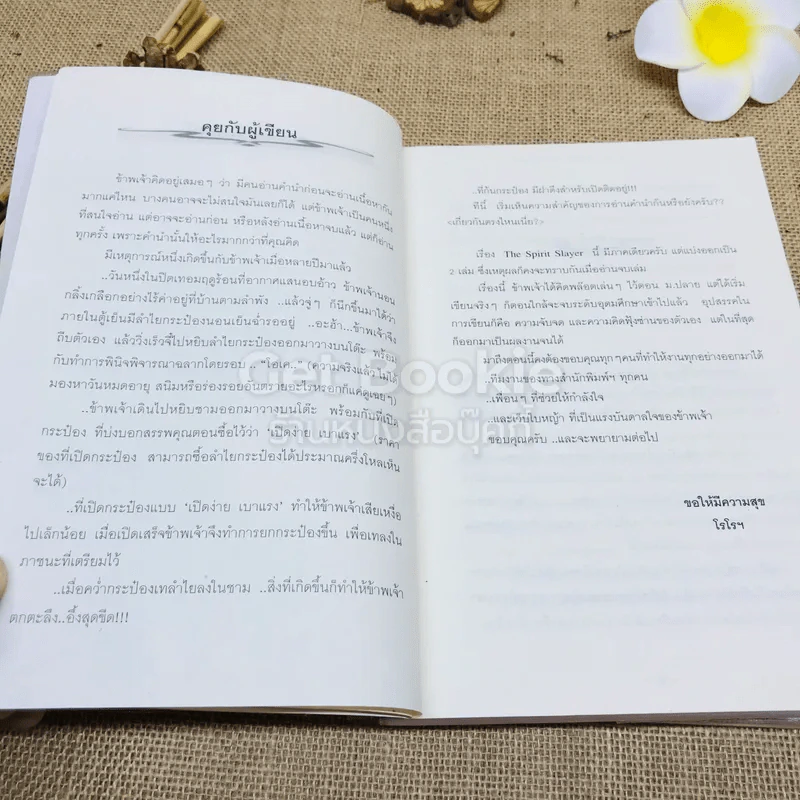 คุยกับผู้เขียน
ข้าพเจ้าคิดอยู่เสมอๆ ว่า มีคนอ่านคำนำก่อนจะอ่านเนื้อหากัน
มากแค่ไหน บางคนอาจจะไม่สนใจมันเลยก็ได้ แต่ข้าพเจ้าเป็นคนหนึ่ง
ที่สนใจอ่าน แต่อาจจะอ่านก่อน หรือหลังอ่านเนื้อหาจบแล้ว แต่ก็อ่าน
ทุกครั้ง เพราะคำนำนั้นให้อะไรมากกว่าที่คุณคิด
มีเหตุการณ์หนึ่งเกิดขึ้นกับข้าพเจ้าเมื่อหลายปีมาแล้ว
..วันหนึ่งในปิดเทอมฤดูร้อนที่อากาศแสนอบอ้าว ข้าพเจ้านอน
กลิ้งเกลือกอย่างไร้ค่าอยู่ที่บ้านตามลำพัง ..แล้วจู่ๆ ก็นึกขึ้นมาได้ว่า
ภายในตู้เย็นมีลำไยกระป๋องนอนเย็นฉ่ำรออยู่ ..อะฮ้า...ข้าพเจ้าจึง
ถีบตัวเอง แล้ววิ่งเร็วจี๋ไปหยิบลำไยกระป๋องออกมาวางบนโต๊ะ พร้อม
กับทำการพินิจพิจารณาฉลากโดยรอบ .."โอเค.. (ความจริงแล้ว ไม่ได้
มองหาวันหมดอายุ สนิมหรือร่องรอยอันตรายอะไรหรอกก็แค่ดูเฉยๆ)
..ข้าพเจ้าเดินไปหยิบชามออกมาวางบนโต๊ะ พร้อมกับที่เปิด
กระป๋อง ที่บ่งบอกสรรพคุณตอนซื้อไว้ว่า 'เปิดง่าย เบาแรง' (ราคา
ของที่เปิดกระป๋อง สามารถซื้อลำไยกระป๋องได้ประมาณครึ่งโหลเห็น
จะได้)
..ที่เปิดกระป๋องแบบ 'เปิดง่าย เบาแรง' ทำให้ข้าพเจ้าเสียเหงื่อ
ไปเล็กน้อย เมื่อเปิดเสร็จข้าพเจ้าจึงทำการยกกระป๋องขึ้น เพื่อเทลงใน
ภาชนะที่เตรียมไว้
..เมื่อคว่ำกระป๋องเทลำไยลงในชาม ..สิ่งที่เกิดขึ้นก็ทำให้ข้าพเจ้า
ตกตะลึง..อึ้งสุดขีด!!!
..ที่ก้นกระป๋อง มีฝาดึงสำหรับเปิดติดอยู่!!!
ทีนี้ เริ่มเห็นความสำคัญของการอ่านคำนำกันหรือยังครับ??
<เกี่ยวกันตรงไหนเนี่ย?>
เรื่อง The Spirit Slayer นี้ มีภาคเดียวครับ แต่แบ่งออกเป็น
2 เล่ม ซึ่งเหตุผลก็คงจะทราบกันเมื่ออ่านจบเล่ม
เรื่องนี้ ข้าพเจ้าได้คิดพล็อตเล่นๆ ไว้ตอน ม.ปลาย แต่ได้เริ่ม
เขียนจริงๆ ก็ตอนใกล้จะจบระดับอุดมศึกษาเข้าไปแล้ว อุปสรรคใน
การเขียนก็คือ ความจับจด และความคิดฟุ้งซ่านของตัวเอง แต่ในที่สุด
ก็ออกมาเป็นผลงานจนได้
มาถึงตอนนี้คงต้องขอบคุณทุกๆคนที่ทำให้งานทุกอย่างออกมาได้
..ทีมงานของทางสำนักพิมพ์ฯ ทุกคน
..เพื่อนๆ ที่ช่วยให้กำลังใจ
..และเว็บใบหญ้า ที่เป็นแรงบันดาลใจของข้าพเจ้า
ขอบคุณครับ ..และจะพยายามต่อไป
ขอให้มีความสุข
โรโรฯ
GetBookie
ร้านหนังสือบุ๊คกี้